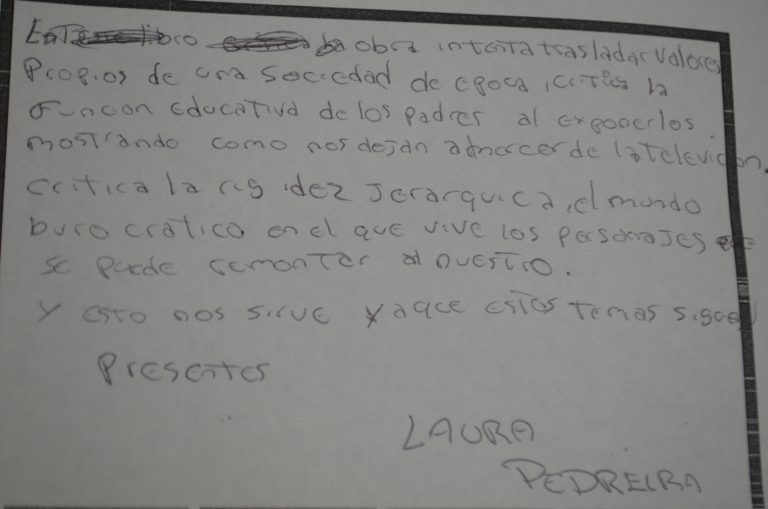 La obra intenta trasladar valores
Propios de una sociedad de epoca, critica la
funcion educativa de los padres al exponerlos.
mostrando como nos dejan a merced de la television.
critica la rigidez Jerarquica, el mundo
burocratico en el que vive los personajes
se puede remonter al nuestro.
Y esto nos sirve ya que estos temas siguen
Presentes
LAURA
PEDREIRA